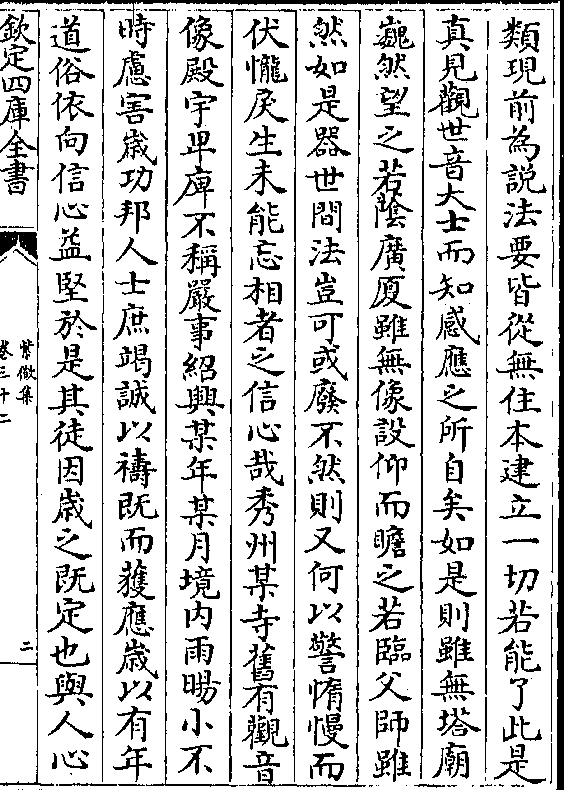 類現前為説法要皆從無住本建立一切若能了此是
真見觀世音大士而知感應之所自矣如是則雖無塔廟
巍然望之若陰廣厦雖無像設仰而瞻之若臨父師雖
然如是器世間法豈可或廢不然則又何以警惰慢而
伏㤭戾生未能忘相者之信心哉秀州某寺舊有觀音
像殿宇卑庳不稱嚴事紹興某年某月境内雨暘小不
時慮害嵗功邦人士庶竭誠以禱既而獲應嵗以有年
道俗依向信心益堅於是其徒因嵗之既定也與人心
欽定四庫全書
紫微集
卷三十二
二